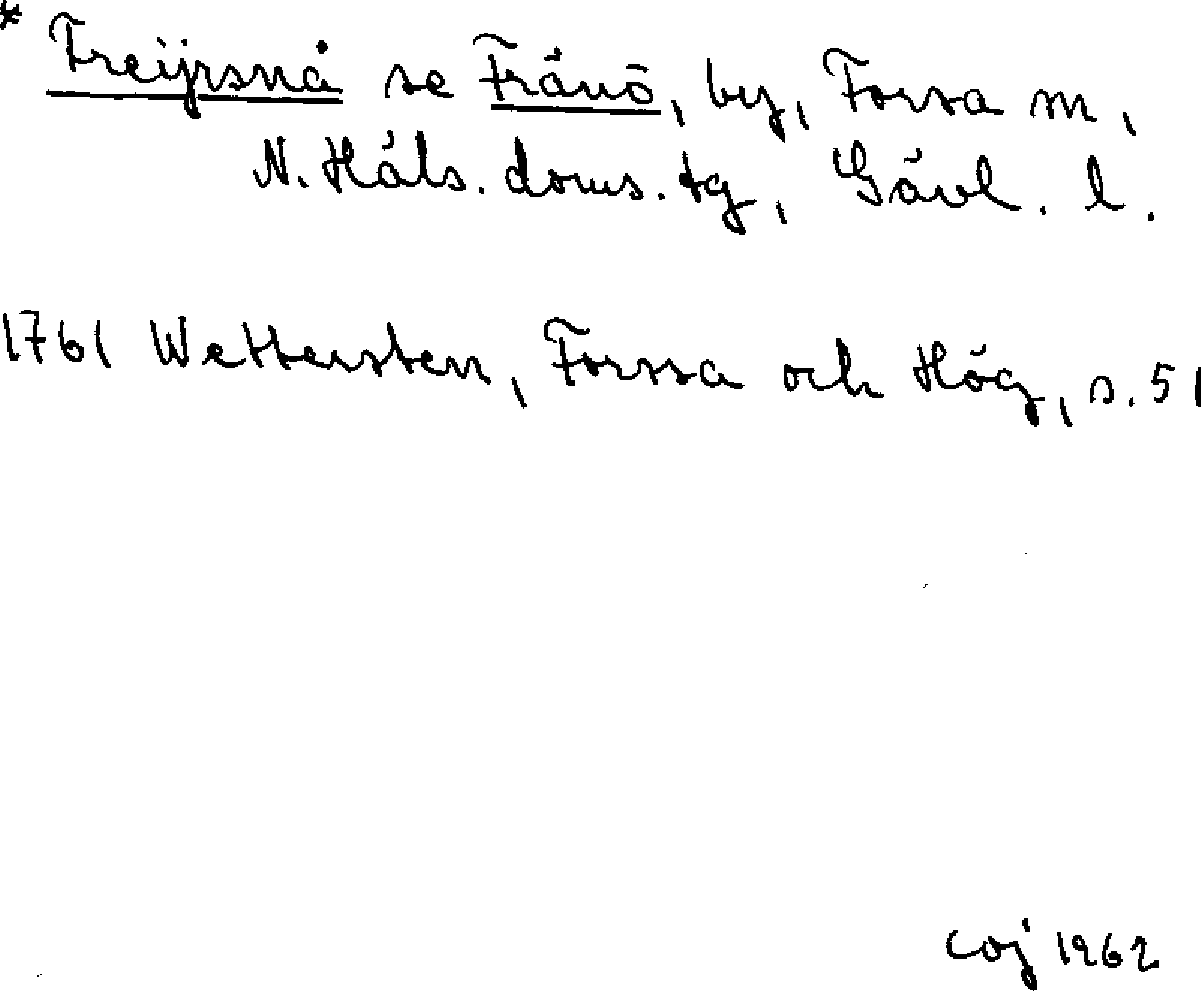 * Freijrsnå se Frånö, by, Forsa sn,
N. Häls. doms. tg, Gävl. l.
1761 Wettersten, Forssa och Hög, s. 51
coj 1962